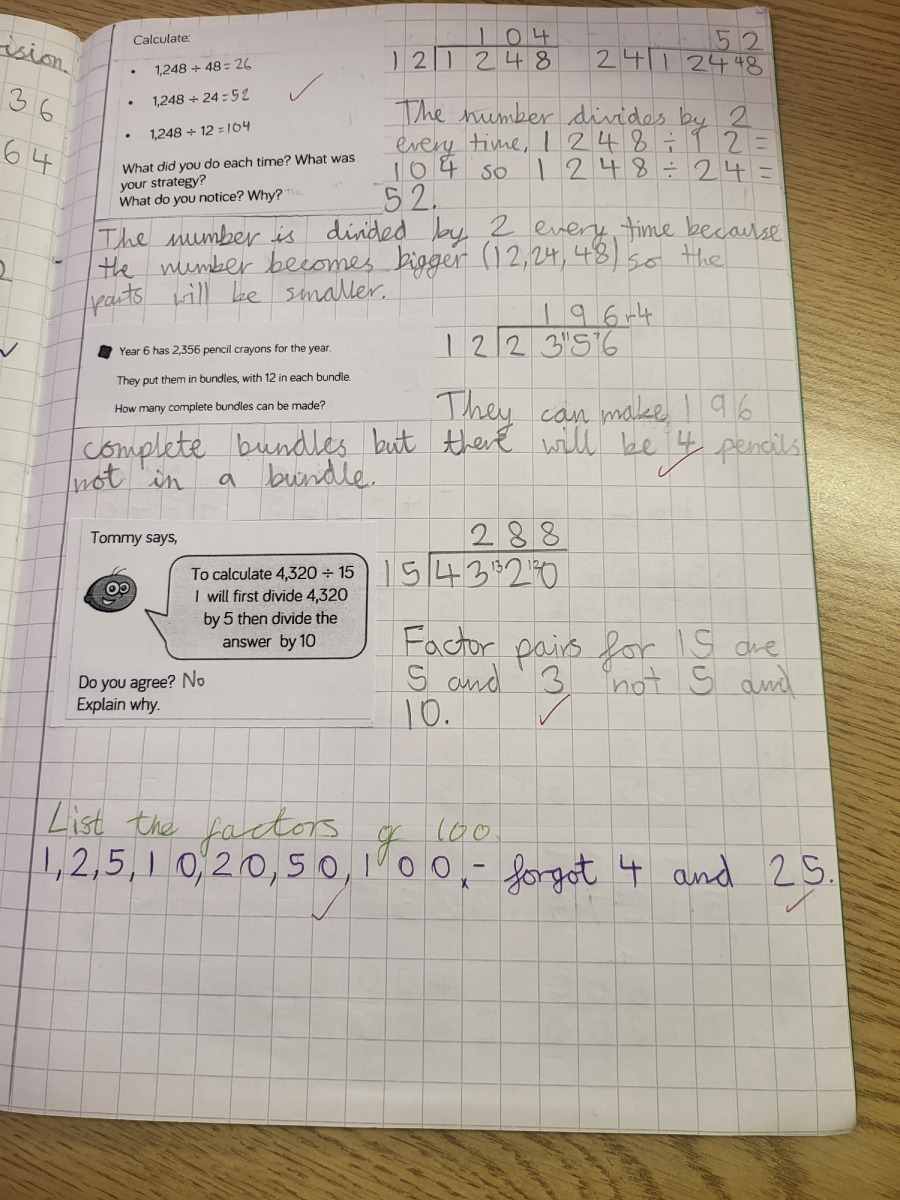 ision.
3 6
6 4
2
Calculate:
• 1,248 ÷ 48 = 26
• 1,248 ÷ 24 = 52
• 1,248 ÷ 12 = 104
What did you do each time? What was
your strategy?
What do you notice? Why?
1 0 4
1 2 1 2 4 8
5 2
2 4 1 2 4 48
The number divides by 2
every time, 1 2 4 8 ÷ 1 2 =
1 0 4 so 1 2 4 8 ÷ 2 4 =
5 2.
The number is divided by 2 every time because
the number becomes bigger (12,24,48) so the
parts will be smaller.
Year 6 has 2,356 pencil crayons for the year.
They put them in bundles, with 12 in each bundle.
How many complete bundles can be made?
1 9 6 r4
1 2 2 3 11 5 7 6
They can make 1 9 6
complete bundles but there will be 4 pencils
not in a bundle.
Tommy says,
To calculate 4,320 ÷ 15
I will first divide 4,320
by 5 then divide the
answer by 10
Do you agree? No
Explain why.
2 8 8
1 5 4 3 13 2 12 0
Factor pairs for 15 are
5 and 3 not 5 and
10.
List the factors of 100.
1, 2, 5, 1 0, 2 0, 5 0, 1 0 0. - forgot 4 and 2 5.